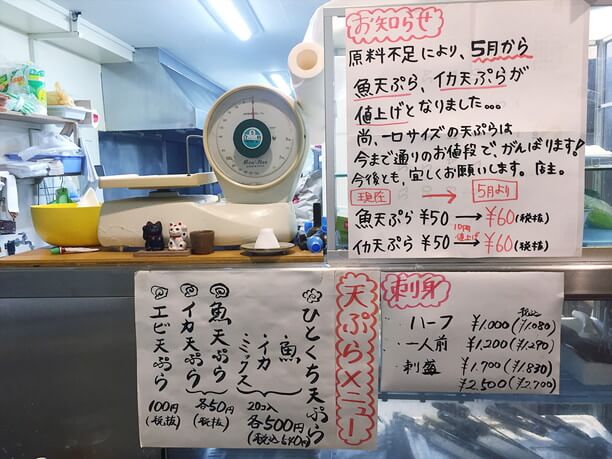 お知らせ
原料不足により、5月から
魚天ぷら、イカ天ぷらが
値上げとなりました…
尚、一口サイズの天ぷらは
今まで通りのお値段で、がんばります!
今後とも、宜しくお願いします。店主。
現在 → 5月より
魚天ぷら ¥50 → ¥60(税抜)
10円値上げ
イカ天ぷら ¥50 → ¥60(税抜)
天ぷらメニュー
ひとくち天ぷら
魚
イカ
ミックス
20コ入
各500円
(税込540円)
魚天ぷら
イカ天ぷら
各50円
(税抜)
エビ天ぷら
100円
(税抜)
刺身
税込
・ハーフ ¥1.000(¥1.080)
・一人前 ¥1.200(¥1.290)
・刺盛 ¥1.700(¥1.830)
¥2.500(¥2.700)